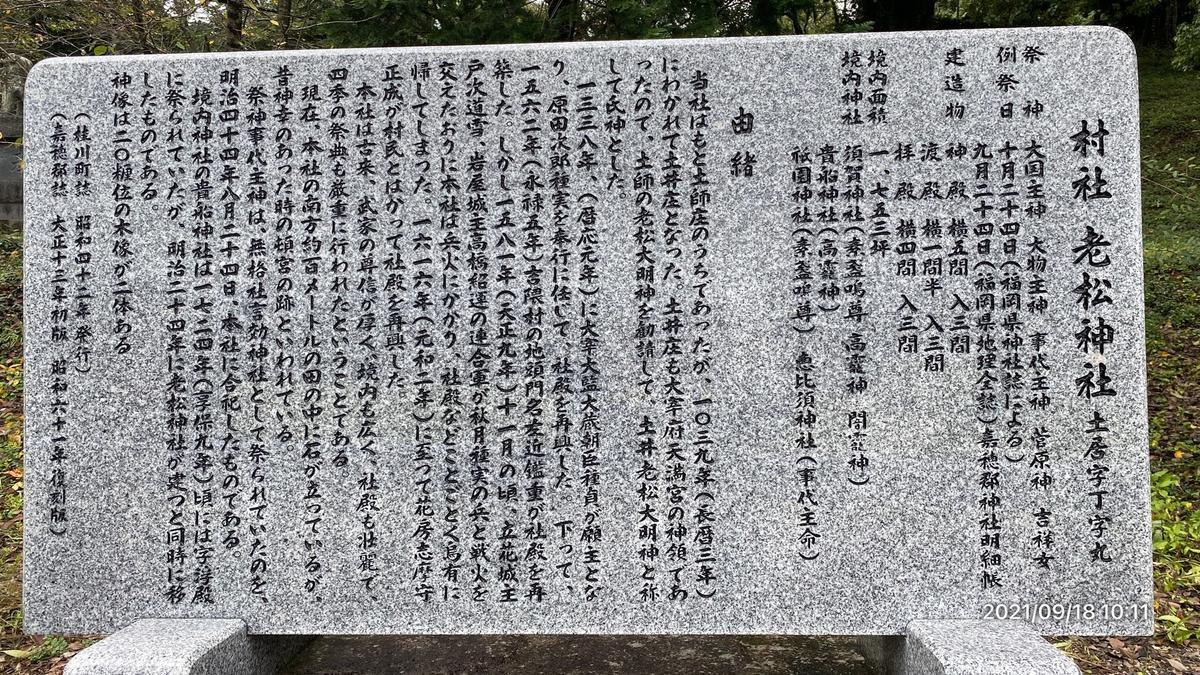 村社 老松神社 土居字丁字丸
祭神 大国主神 大物主神 事代主神 菅原神 吉祥女
例祭日 十月二十四日(福岡県神社誌による)
九月二十四日(福岡県地理全誌)嘉穂郡神社明細帳
建造物 神殿 横五間 入三間
渡殿 横一間半 入三間
拝殿 横四間 入三間
境内面積 一、七五三坪
境内神社 須賀神社(素盞嗚尊 高龗神 闇龗神)
貴船神社(高龗神)
祇園神社(素盞嗚尊) 恵比須神社(事代主命)
由緒
当社はもと土師庄のうちであったが、一〇三九年(長暦三年)
にわかれて土井庄となった。土井庄も大宰府天満宮の神領であ
ったので、土師の老松大明神を勧請して、土井老松大明神と称
して氏神とした。
一三三八年、(暦応元年)に大宰大監大蔵朝臣種貞が願主とな
り、原田次郎種実を奉行に任じて、社殿を再興した。下って、
一五六二年(永禄五年)吉隈村の地頭門名左近鑑重が社殿を再
築した。しかし一五八一年(天正九年)十一月の頃、立花城主
戸次道雪、岩屋城主高橋紹運の連合軍が秋月種実の兵と戦火を
交えたおりに本社は兵火にかかり、社殿などことごとく烏有に
帰してしまった。一六一六年(元和二年)に至って花房志摩守
正成が村民とはかって社殿を再興した。
本社は古来、武家の尊信が厚く、境内も広く、社殿も壮麗で、
四季の祭典も厳重に行われたということである
現在、本社の南方約百メートルの田の中に石が立っているが、
昔神幸のあった時の頓宮の跡といわれている。
祭神事代主神は、無格社言劾神社として祭られていたのを、
明治四十四年八月二十四日、本社に合祀したものである
境内神社の貴船神社は一七二四年(享保九年)頃には字詩殿
に祭られていたが、明治二十四年に老松神社が建つと同時に移
したものである
神像は二〇糎位の木像が二体ある。
(桂川町誌 昭和四十二年発行)
(嘉穂郡誌 大正十三年初版 昭和六十一年復刻版)
2021/09/18 10:11